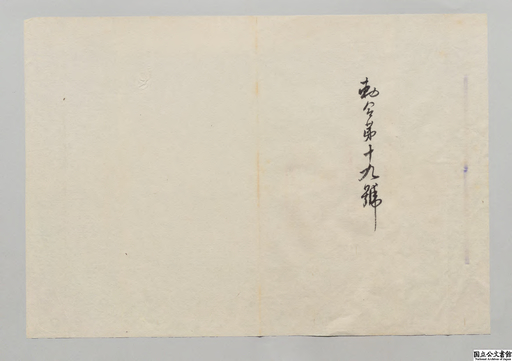 勅令第十九號
国立公文書館
National Archives of Japan